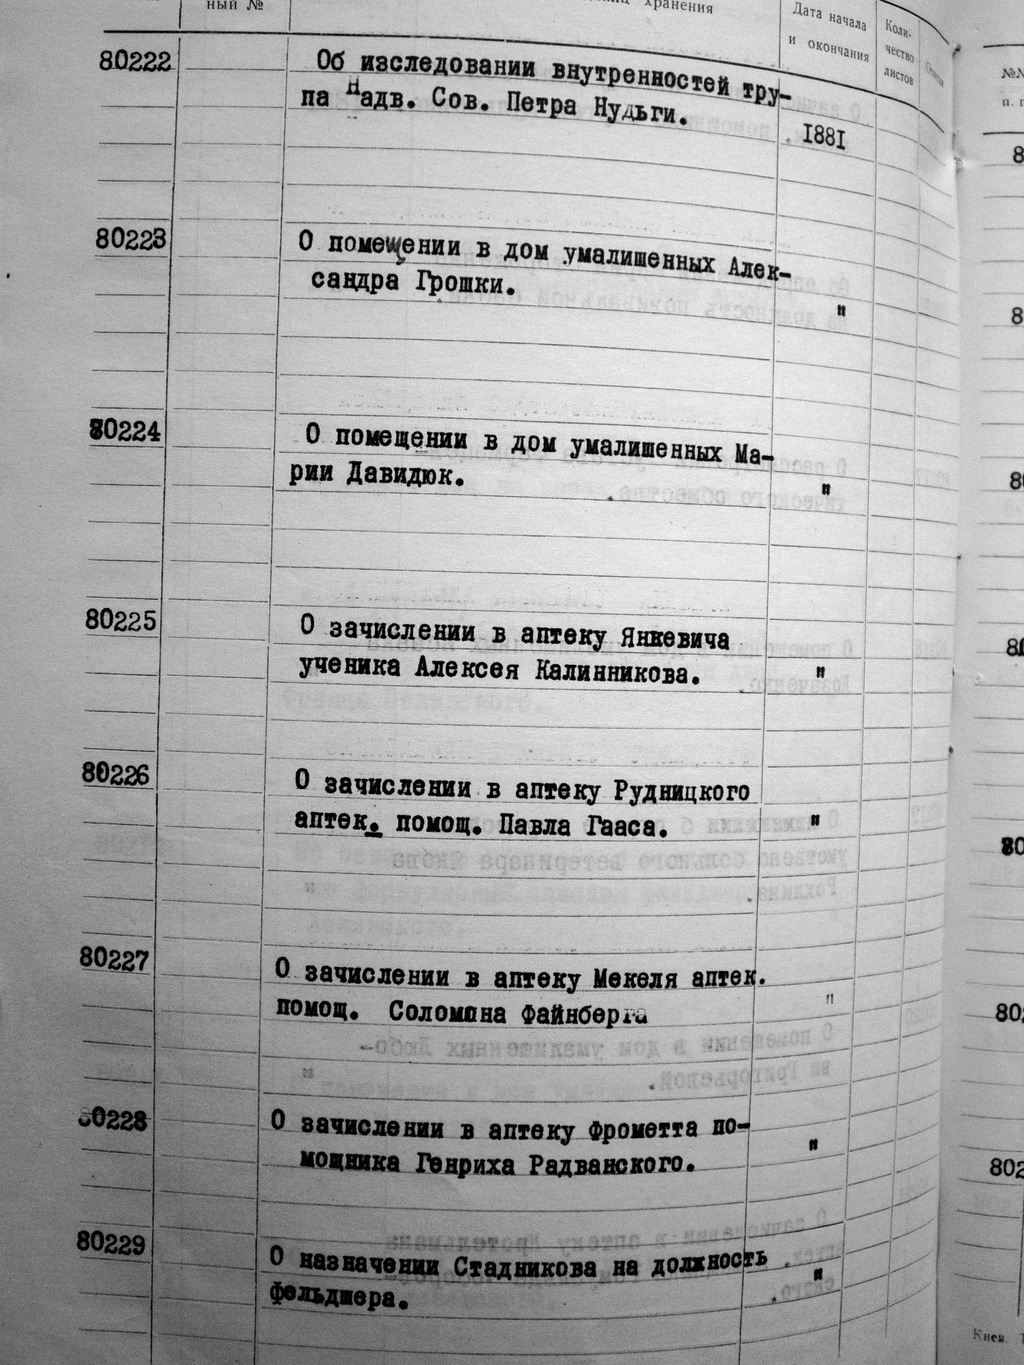 ный №
хранения
Дата начала
и окончания
Коли-
чество
листов
80222
Об изследовании внутренностей тру-
па Надв. Сов. Петра Нудьги.
1881
80223
О помещении в дом умалишенных Алек-
сандра Грошки.
"
80224
О помещении в дом умалишенных Ма-
рии Давидюк.
"
80225
О зачислении в аптеку Янкевича
ученика Алексея Калинникова.
"
80226
О зачислении в аптеку Рудницкого
аптек. помощ. Павла Гааса.
"
80227
О зачислении в аптеку Мекеля аптек.
помощ. Соломона Файнберга
"
80228
О зачислении в аптеку Фрометта по-
мощника Генриха Радванского.
"
80229
О назначении Стадникова на должность
фельдшера.
"
№№
п. п
Киев.